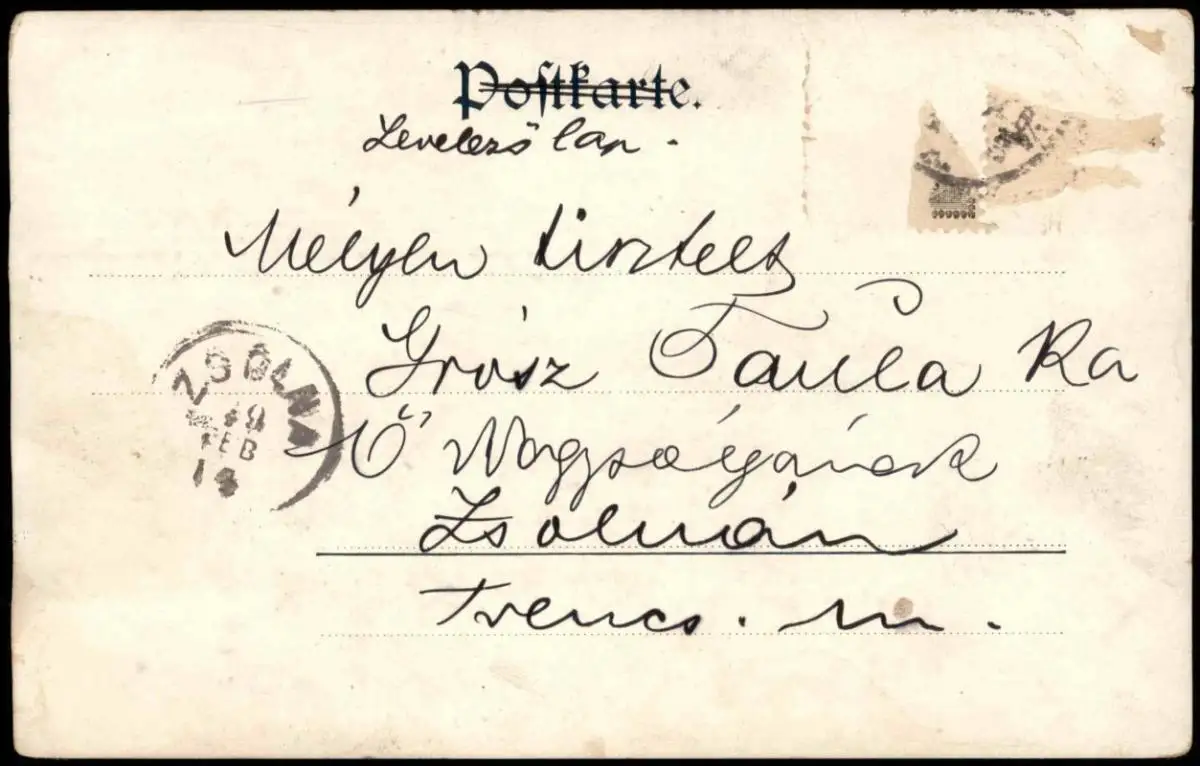 Postkarte.
Levelező lap.
Mélyen tisztelt
Grósz Paula Ka
Ő Nagyságának
Zsolnán
Trencs. m.
ZSOLNA
FEB